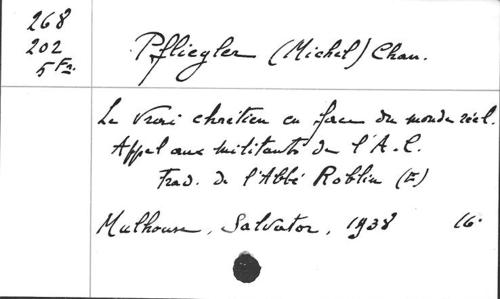 268
202
5 Fr.
Pfliegler (Michel) Chan.
Le vrai chrétien en face du monde réel.
Appel aux militants de l'A.C.
Trad. de l'Abbé Roblin (E)
Mulhouse, Salvator, 1938 16°